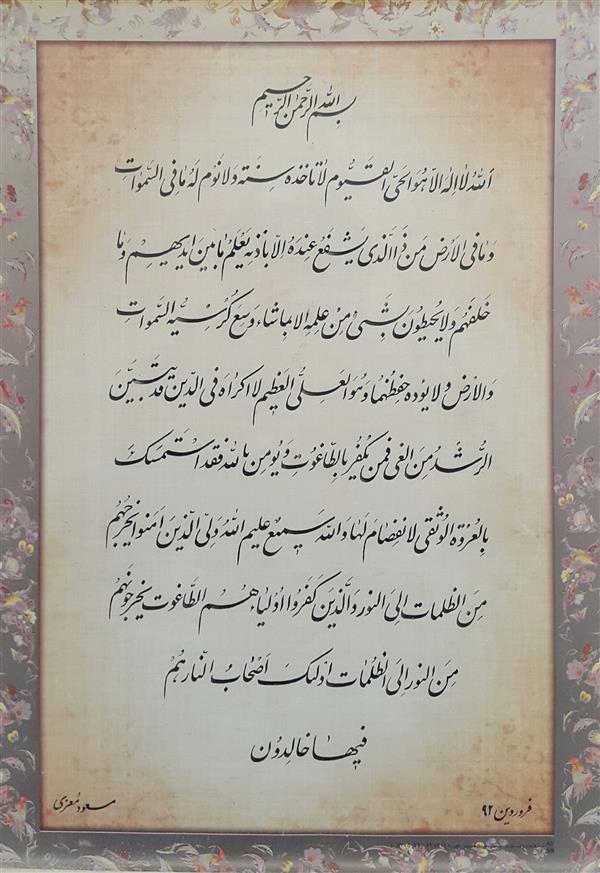 بسم الله الرحمن الرحیم
الله لا اله الا هو الحی القیوم لا تاخذه سنة ولا نوم له ما فی السموات
وما فی الارض من ذا الذی یشفع عنده الا باذنه یعلم ما بین ایدیهم وما
خلفهم ولا یحیطون بشیء من علمه الا بما شاء وسع کرسیه السموات
والارض ولا یوده حفظهما وهو العلی العظیم لا اکراه فی الدین قد تبین
الرشد من الغی فمن یکفر بالطاغوت ویومن بالله فقد استمسک
بالعروة الوثقی لا نفصام لها والله سمیع علیم الله ولی الذین امنوا یخرجهم
من الظلمات الی النور والذین کفروا اولیاء هم الطاغوت یخرجونهم
من النور الی الظلمات اولئک اصحاب النار هم
فیها خالدون
فروردین ۹۲
مسعود معزی